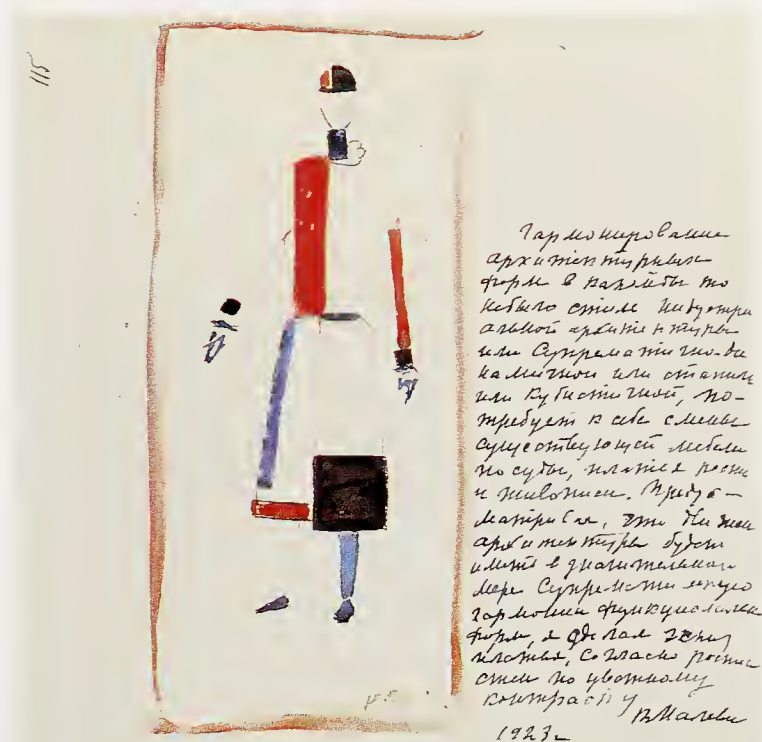 115
Гармонирование
архитектурных
форм в какой бы то
небыло стиле Индустри
альной архитектуры
или Супрематично-ди
намичной или станич
или Кубистичной, по-
требует к себе смены
существующей мебели
посуды, платья росписи
и живописи. Преду-
матривая, что движ
архитектуры будет
иметь в значительной
мере Супрематическую
гармонию функциональн
форм, я сделал эскиз
платья, согласно росписи
стен по цветному
контрасту
КМалеви
1923г